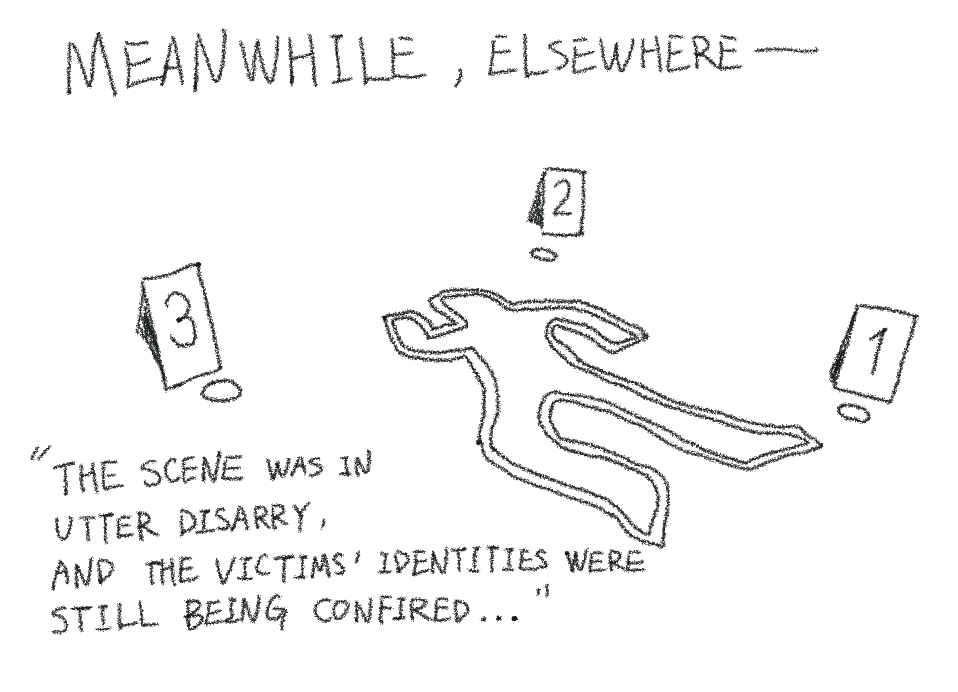 MEANWHILE, ELSEWHERE—
2
3
1
"THE SCENE WAS IN
UTTER DISARRY,
AND THE VICTIMS' IDENTITIES WERE
STILL BEING CONFIRED..."